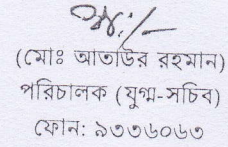 স্বা:/-
(মোঃ আতাউর রহমান)
পরিচালক (যুগ্ম-সচিব)
ফোন: ৯৩৩৬০৬৩